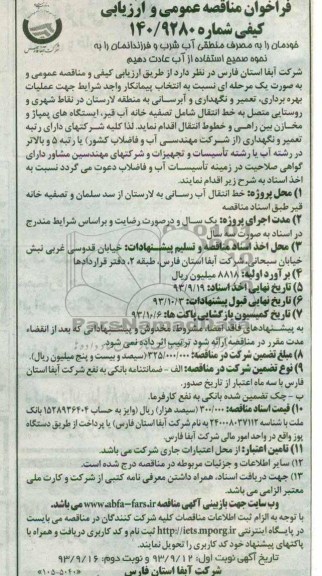 فراخوان مناقصه عمومی و ارزیابی
کیفی شماره ۱۴۰/۹۲۸۰
خودمان را به مصرف منطقی آب شرب و فرزندانمان را به
نحوه صحیح استفاده از آب عادت دهیم
شرکت آبفا استان فارس در نظر دارد از طریق ارزیابی کیفی و مناقصه عمومی و
به صورت یک مرحله ای نسبت به انتخاب پیمانکار واجد شرایط جهت عملیات
بهره برداری، تعمیر و نگهداری و آبرسانی به منطقه لارستان در نقاط شهری و
روستایی متصل به خط انتقال شامل تصفیه خانه آب قیر، ایستگاه های پمپاژ و
مخازن بین راهی و خطوط انتقال اقدام نماید. لذا کلیه شرکتهای دارای رتبه
تعمیر و نگهداری (از شرکت مهندسی آب و فاضلاب کشور) یا رتبه ۵ و بالاتر
در رشته آب یا رشته تأسیسات و تجهیزات و شرکتهای مهندسین مشاور دارای
گواهی صلاحیت در زمینه تأسیسات آب و فاضلاب دعوت می گردد نسبت به
اخذ اسناد به شرح زیر اقدام نمایند.
۱) محل پروژه: خط انتقال آب رسانی به لارستان از سد سلمان و تصفیه خانه
قیر طبق اسناد مناقصه
۲) مدت اجرای پروژه: یک سال و درصورت رضایت و براساس شرایط مندرج
در اسناد به صورت سه سال
۳) محل اخذ اسناد مناقصه و تسلیم پیشنهادات: خیابان قدوسی غربی نبش
خیابان سبحانی، شرکت آبفا استان فارس، طبقه ۲، دفتر قراردادها
۴) برآورد اولیه: ۸۸۱۸ میلیون ریال
۵) تاریخ نهایی اخذ اسناد: ۹۳/۹/۱۹
۶) تاریخ نهایی قبول پیشنهادات: ۹۳/۱۰/۳
۷) تاریخ کمیسیون بازگشایی پاکت ها: ۹۳/۱۰/۶
به پیشنهادهای فاقد امضا، مشروط، مخدوش و پیشنهاداتی که بعد از انقضاء
مدت مقرر در مناقصه ارائه شود ترتیب اثر داده نمی شود.
۸) مبلغ تضمین شرکت در مناقصه: ۳۲۵/۰۰۰/۰۰۰ (سیصد و بیست و پنج میلیون ریال).
۹) نوع تضمین شرکت در مناقصه: الف - ضمانتنامه بانکی به نفع شرکت آبفا استان
فارس با سه ماه اعتبار از تاریخ صدور.
ب - چک تضمین شده بانکی به نفع کارفرما.
۱۰) قیمت اسناد مناقصه: ۳۰۰/۰۰۰ (سیصد هزار) ریال (واریز به حساب ۱۵۲۸۹۳۶۴۰۴ بانک
ملت با شناسه ۲۴۰۰۰۸۰۳۷۱۱۲ به نام شرکت آبفا استان فارس) یا پرداخت از طریق دستگاه
پوز واقع در واحد امور مالی شرکت آبفا فارس.
۱۱) تامین اعتبار: از محل اعتبارات جاری شرکت می باشد.
۱۲) سایر اطلاعات و جزئیات مربوطه در مناقصه درج شده است.
۱۳) جهت دریافت اسناد، همراه داشتن معرفی نامه کتبی از شرکت و کارت ملی
معتبر الزامی می باشد.
وب سایت جهت بازبینی آگهی مناقصه www.abfa-fars.ir می باشد.
با توجه به الزام ثبت اطلاعات مناقصات کلیه شرکت کنندگان در مناقصه می بایست
در پایگاه اینترنتی http://iets.mporg.ir ثبت نام و کد کاربری دریافت و همراه با
پاکتهای پیشنهاد خود کد کاربری را تحویل نمایند.
تاریخ آگهی نوبت اول: ۹۳/۹/۱۲ و نوبت دوم: ۹۳/۹/۱۶
شرکت آبفا استان فارس
«۱۰۵-۵۰۴۰»